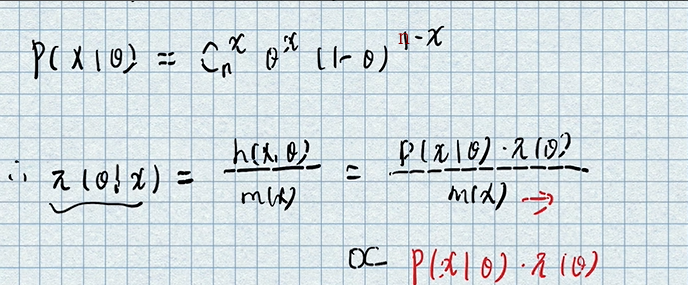 P(x|θ) = C_n^x θ^x (1-θ)^{n-x}
∴ π(θ|x) = h(x,θ)/m(x) = p(x|θ)·π(θ)/m(x) →
∝ p(x|θ)·π(θ)